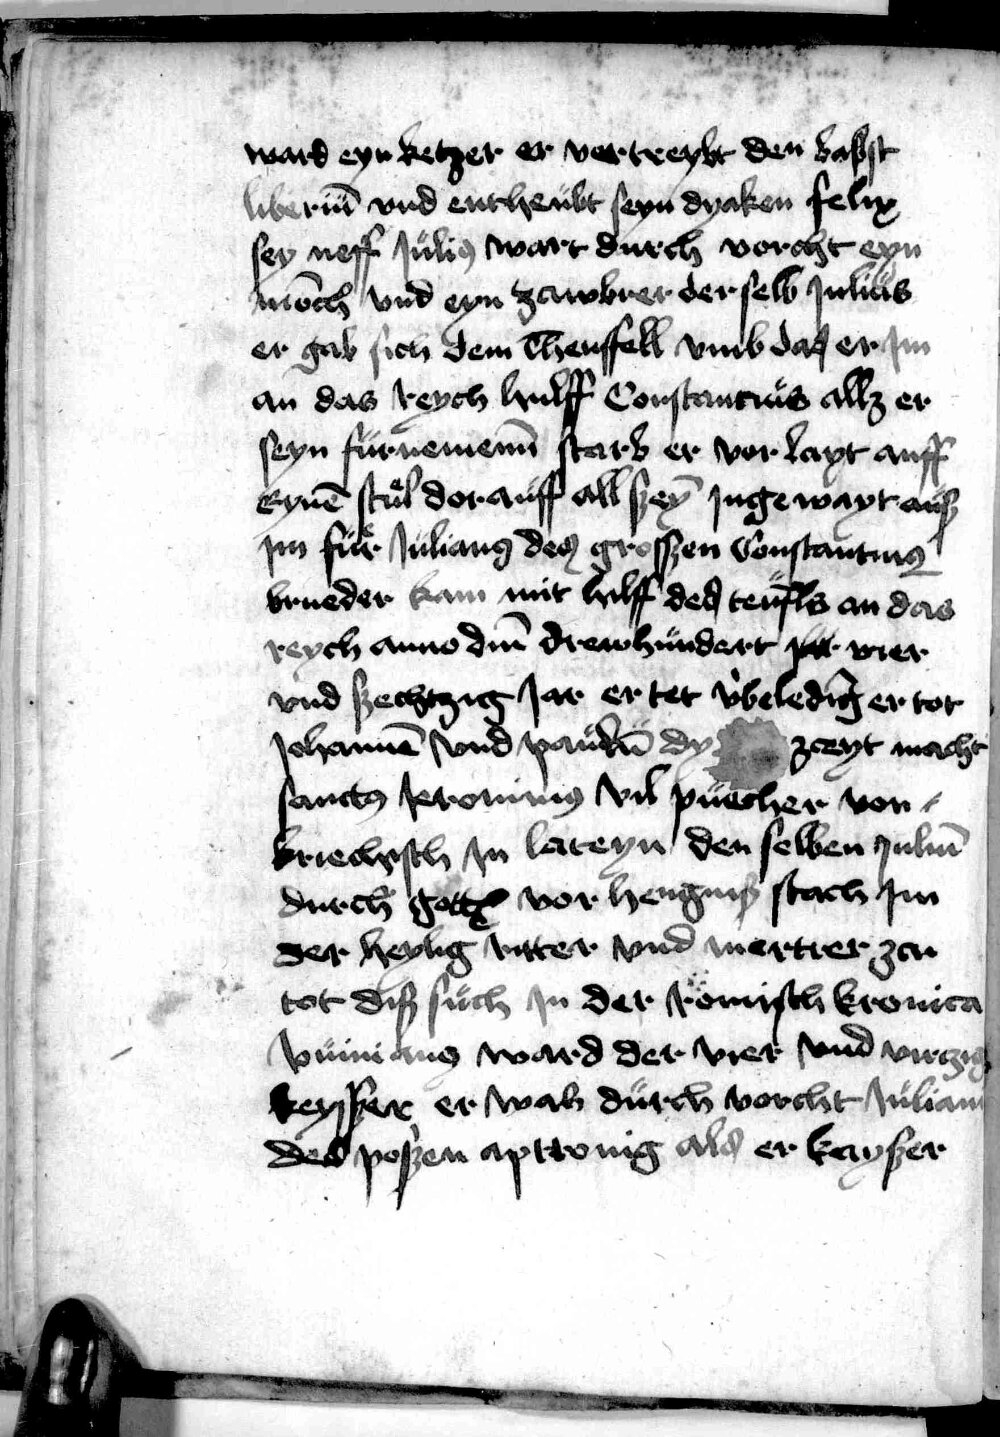 ward eyn ketzer er vertreybt den babst
liberiū vnd entheubt seyn dyaken felix
sey neff Julis wart durch vorcht eyn
mōch vnd eyn zawbrer der selb Julius
er gab sich dem Theuffell vmb das er Jm
an das reych hulff Constancius allz er
seyn fürnemenn starb er vor
Eynē stůl dorauff all Jngewayt
Jm fůr Julianus des grosszen Constantinus
brueder kam mit hilff des teufls an das
reych anno dnī drewhundert vier
vnd szechtzig Jar er tet er tot
Johannē vnd paulū dy zceyt macht
sanctus Jeronimus vil půecher von
kriechisch Jn lateyn den selben Juliū
durch gottz vor hengnisz stach Jm
der heylig ritter vnd mertrer zcu
tot disz such Jn der Römisch kronica
ward der vier vnd virczig
keysszer er was durch vorcht Julian
des poszen als er kayszer